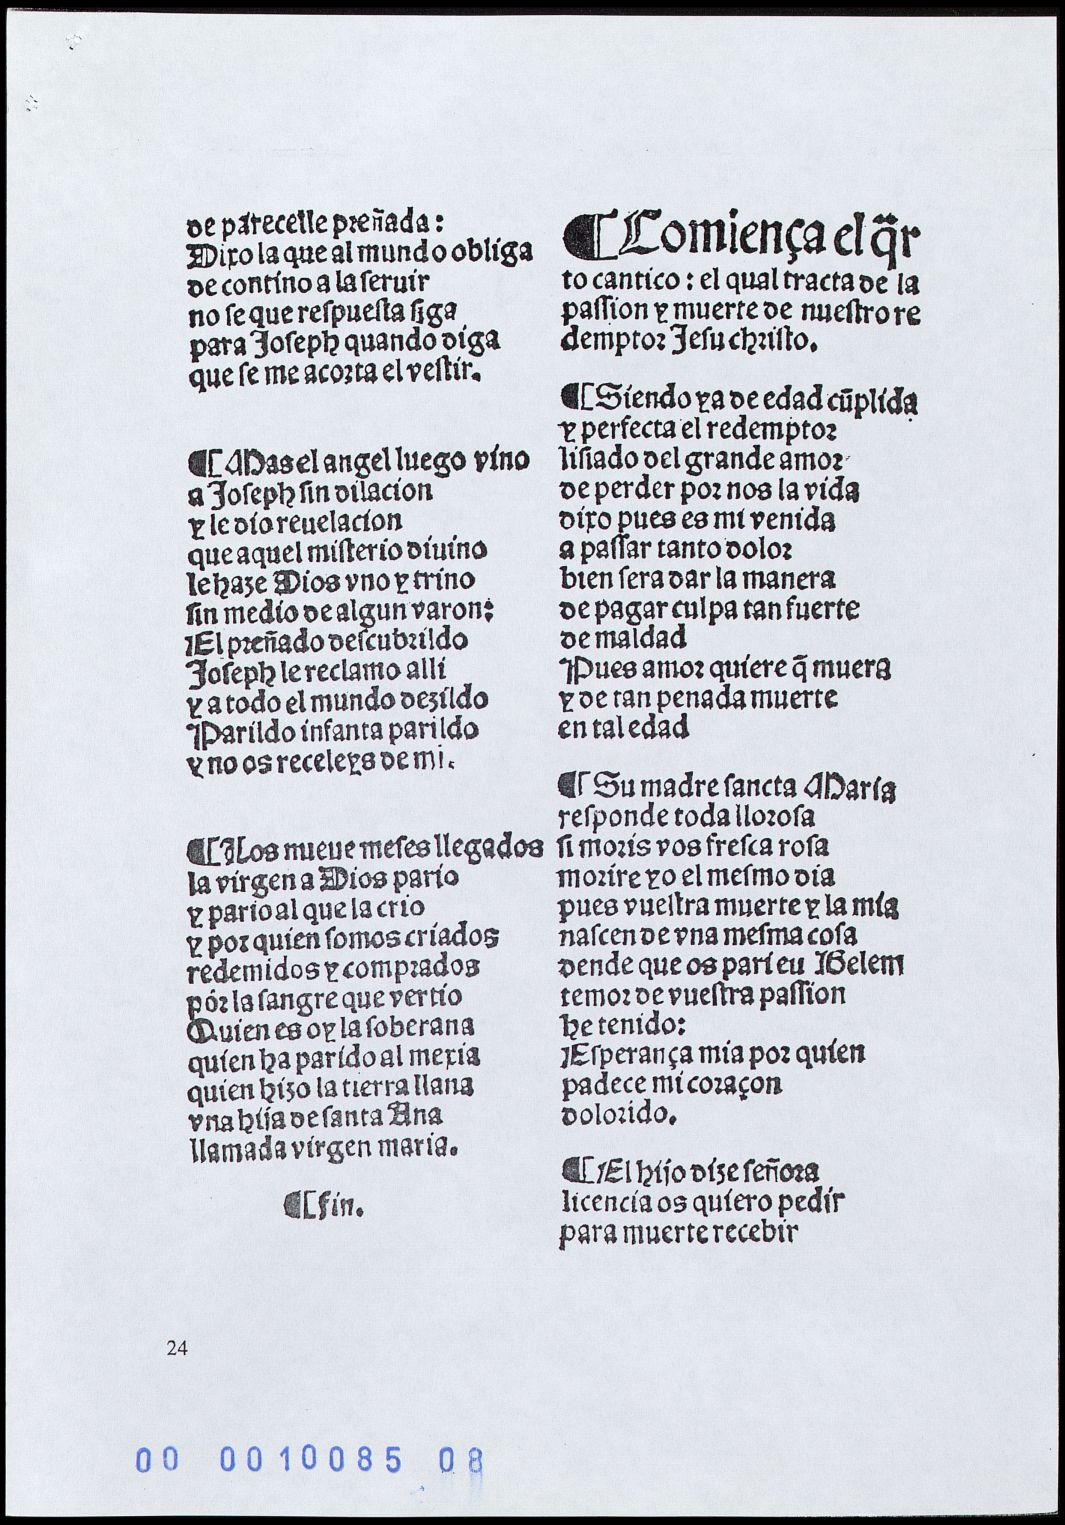 de parecelle preñada:
Dixo la que al mundo obliga
de contino a la seruir
no se que respuesta siga
para Joseph quando diga
que se me acorta el vestir.
¶ Mas el angel luego vino
a Joseph sin dilacion
y le dio reuelacion
que aquel misterio diuino
le haze Dios vno y trino
sin medio de algun varon:
El preñado descubrildo
Joseph le reclamo alli
y a todo el mundo dezildo
Parildo infanta parildo
y no os receleys de mi.
¶ Los nueue meses llegados
la virgen a Dios pario
y pario al que la crio
y por quien somos criados
redemidos y comprados
pór la sangre que vertio
Quien es oy la soberana
quien ha parido al mexia
quien hizo la tierra llana
vna hija de santa Ana
llamada virgen maria.
¶ fin.
¶ Comiença el q̃r
to cantico: el qual tracta de la
passion y muerte de nuestro re
demptor Jesu christo.
¶ Siendo ya de edad cũplida
y perfecta el redemptor
lisiado del grande amor
de perder por nos la vida
dixo pues es mi venida
a passar tanto dolor
bien sera dar la manera
de pagar culpa tan fuerte
de maldad
Pues amor quiere q̃ muera
y de tan penada muerte
en tal edad
¶ Su madre sancta Maria
responde toda llorosa
si moris vos fresca rosa
morire yo el mesmo dia
pues vuestra muerte y la mia
nascen de vna mesma cosa
dende que os pari eu Belem
temor de vuestra passion
he tenido:
Esperança mia por quien
padece mi coraçon
dolorido.
¶ El hijo dize señora
licencia os quiero pedir
para muerte recebir
24
00 0010085 08